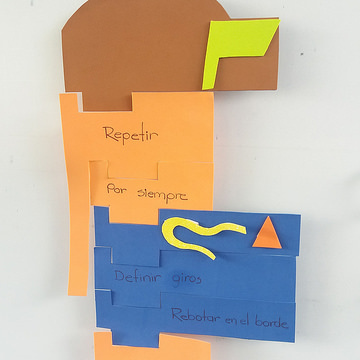 Repetir
Por siempre
Definir giros
Rebotar en el borde